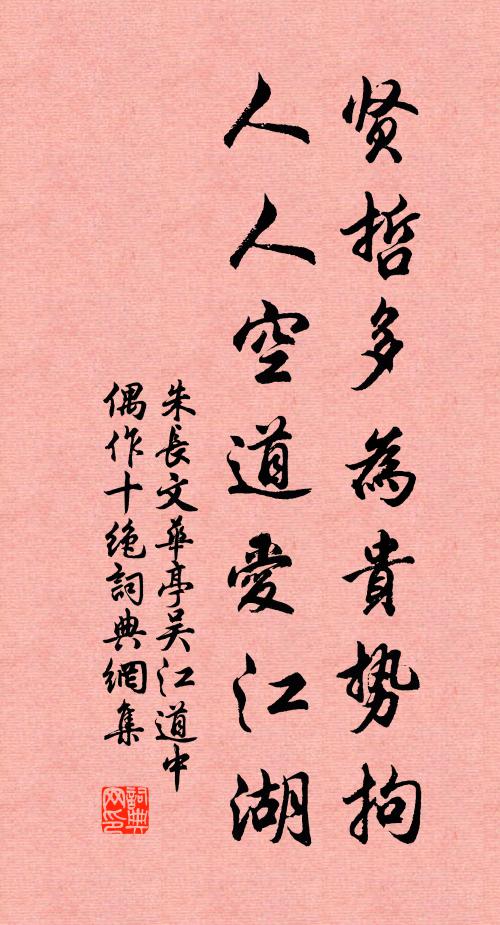 贤哲多為貴势拘
人人空道愛江湖
朱長文華亭吴江道中
偶作十绝詞典網集
詞典
网印